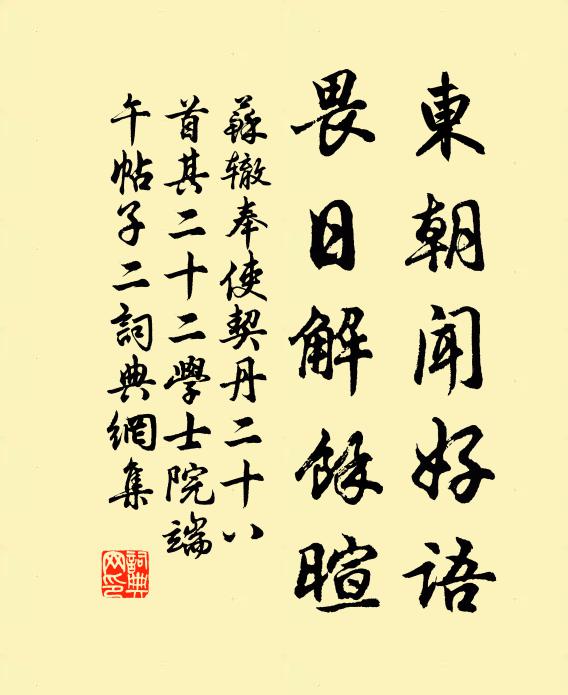 東朝聞好語
畏日解餘暄
蘇轍奉使契丹二十八
首其二十二學士院端
午帖子二詞典網集